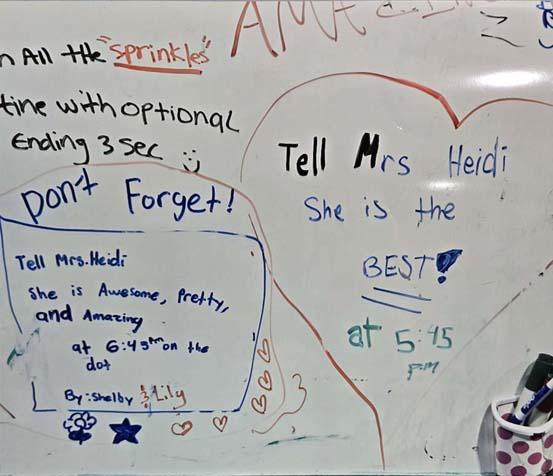 AMA
n All the "sprinkles"
tine with optional
Ending 3 sec
Don't Forget!
Tell Mrs. Heidi
She is Awesome, Pretty,
and Amazing
at 6:45pm on the
dot
By: Shelby & Lily
Tell Mrs Heidi
She is the
BEST!
at 5:45
pm